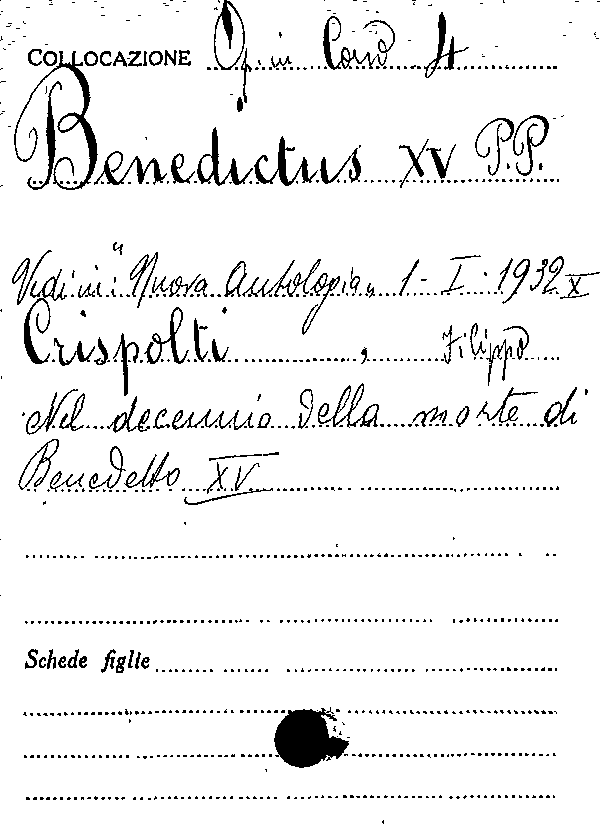 COLLOCAZIONE Op. in Cons 4
Benedictus XV P.P.
Vedi in: "Nuova Antologia„ 1 - I - 1932 X
Crispolti , Filippo
Nel decennio della morte di
Benedetto XV
Schede figlie